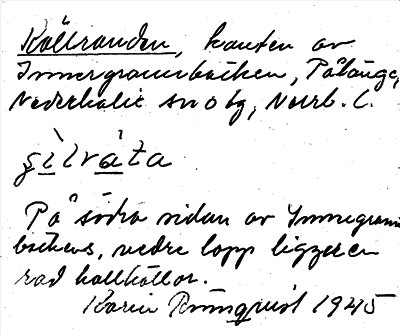 Källranden, kanten av
Innergrannbäcken, Pålänge,
Nederkalix snobg, Norrb. C.
På södra sidan av Innegrann
bäckens, nedre lopp ligger en
rad kallkällor.
Karin Rönnquist 1945